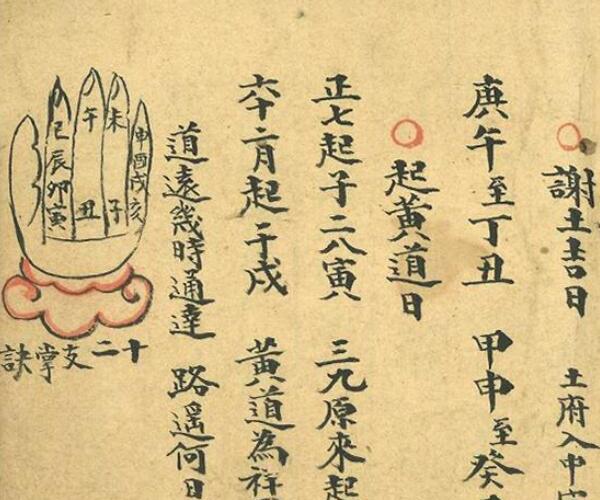 謝土吉日 土府入中
庚午至丁丑 甲申至癸
○起黃道日
正七起子二八寅 三九原來起
六十二月起于戌 黃道為祥
道遠幾時通達 路遙何日
申酉戌亥
未 子
午 丑
巳辰卯寅
十二支掌訣